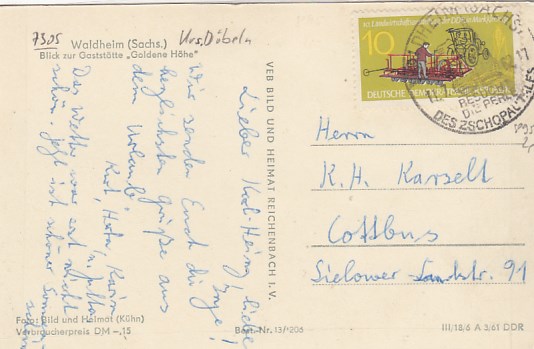 7305
Waldheim (Sachs.)
Blick zur Gaststätte „Goldene Höhe"
Krs. Döbeln
Lieber Karl-Heinz, liebe
Inge!
Wir senden Euch die
herzlichsten Grüße aus
dem Urlaub
Kurt, Herta, Karin
u. Jutta
Das Wetter war erst nicht
schön. Jetzt ist schöner Sonnen-
schein
Foto: Bild und Heimat (Kühn)
Verbraucherpreis DM -,15
Best.-Nr. 13/P206
VEB BILD UND HEIMAT REICHENBACH I. V.
10. Landwirtschaftsausstellung der DDR in Markkleeberg
10
DEUTSCHE DEMOKRATISCHE
WALDHEIM (SACHS)
DIE PERLE
DES ZSCHOPAUTALES
Herrn
K. H. Karselt
Cottbus
Sielower-Landstr. 91
III/18/6 A 3/61 DDR